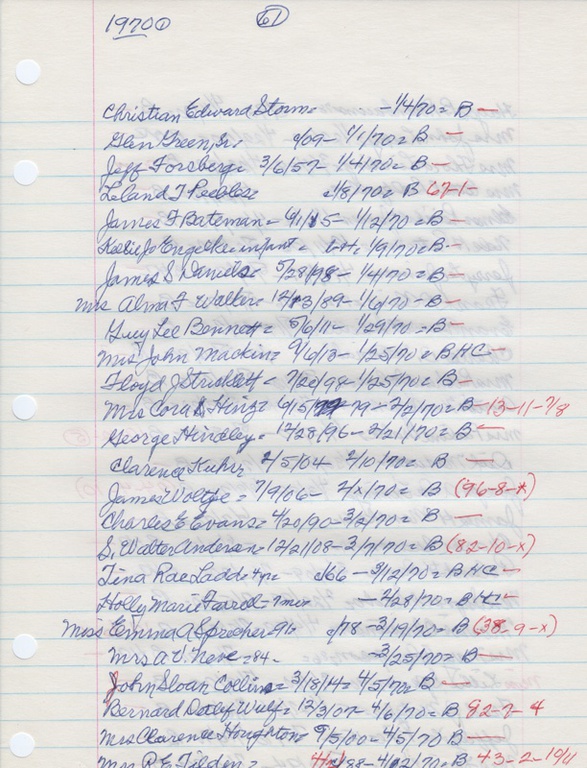 1970① 61
Christian Edward Storm= -1/4/70= B —
Glen Green, Sr. c/09- 1/1/70= B —
Jeff Forsberg= 3/6/57- 1/4/70= B —
Leland T Peebles= c/8/70= B 67-1-
James F Bateman= 6/1/15- 1/12/70= B —
Engelke infant= 1/9/70= B —
James S Daniels= 5/28/98- 1/4/70= B —
Mrs Alma F Walker= 12/13/89- 1/6/70= B —
Lucy Lee Bennett= 5/6/11- 1/29/70= B —
Mrs John Mackin= 9/6/13- 1/25/70= B HC —
Floyd J = 7/20/98- 1/25/70= B —
Mrs Cora S Hinz= 6/15/79- 2/2/70= B-13-11-7/8
George Hindley= 12/28/96- 2/21/70= B —
Clarence Kuhr 2/5/04- 2/10/70= B —
James Woltje= 7/9/06- 2/x/70= B (96-8-x)
Charles E Evans= 4/20/90- 3/2/70= B —
S. Walter Anderson= 12/21/08- 3/7/70= B (82-10-x)
Tina Rae Ladd= 4yr= c/66- 3/12/70= B HC —
Holly Marie Farrell= 7mos -2/28/70= B HC
Miss Emma A Sprecher 91= c/78- 3/19/70= B (38-9-x)
Mrs A.V. Neve=84- -3/25/70= B —
John Sloan Collins= 3/18/14= 4/5/70= B —
Bernard Detlef Wulf= 12/3/07- 4/6/70= B 82-2-4
Mrs Clarence Houghton= 9/5/00- 4/5/70= B —
Mrs R.E. Tilden= /88- 4/12/70= B 43-2-